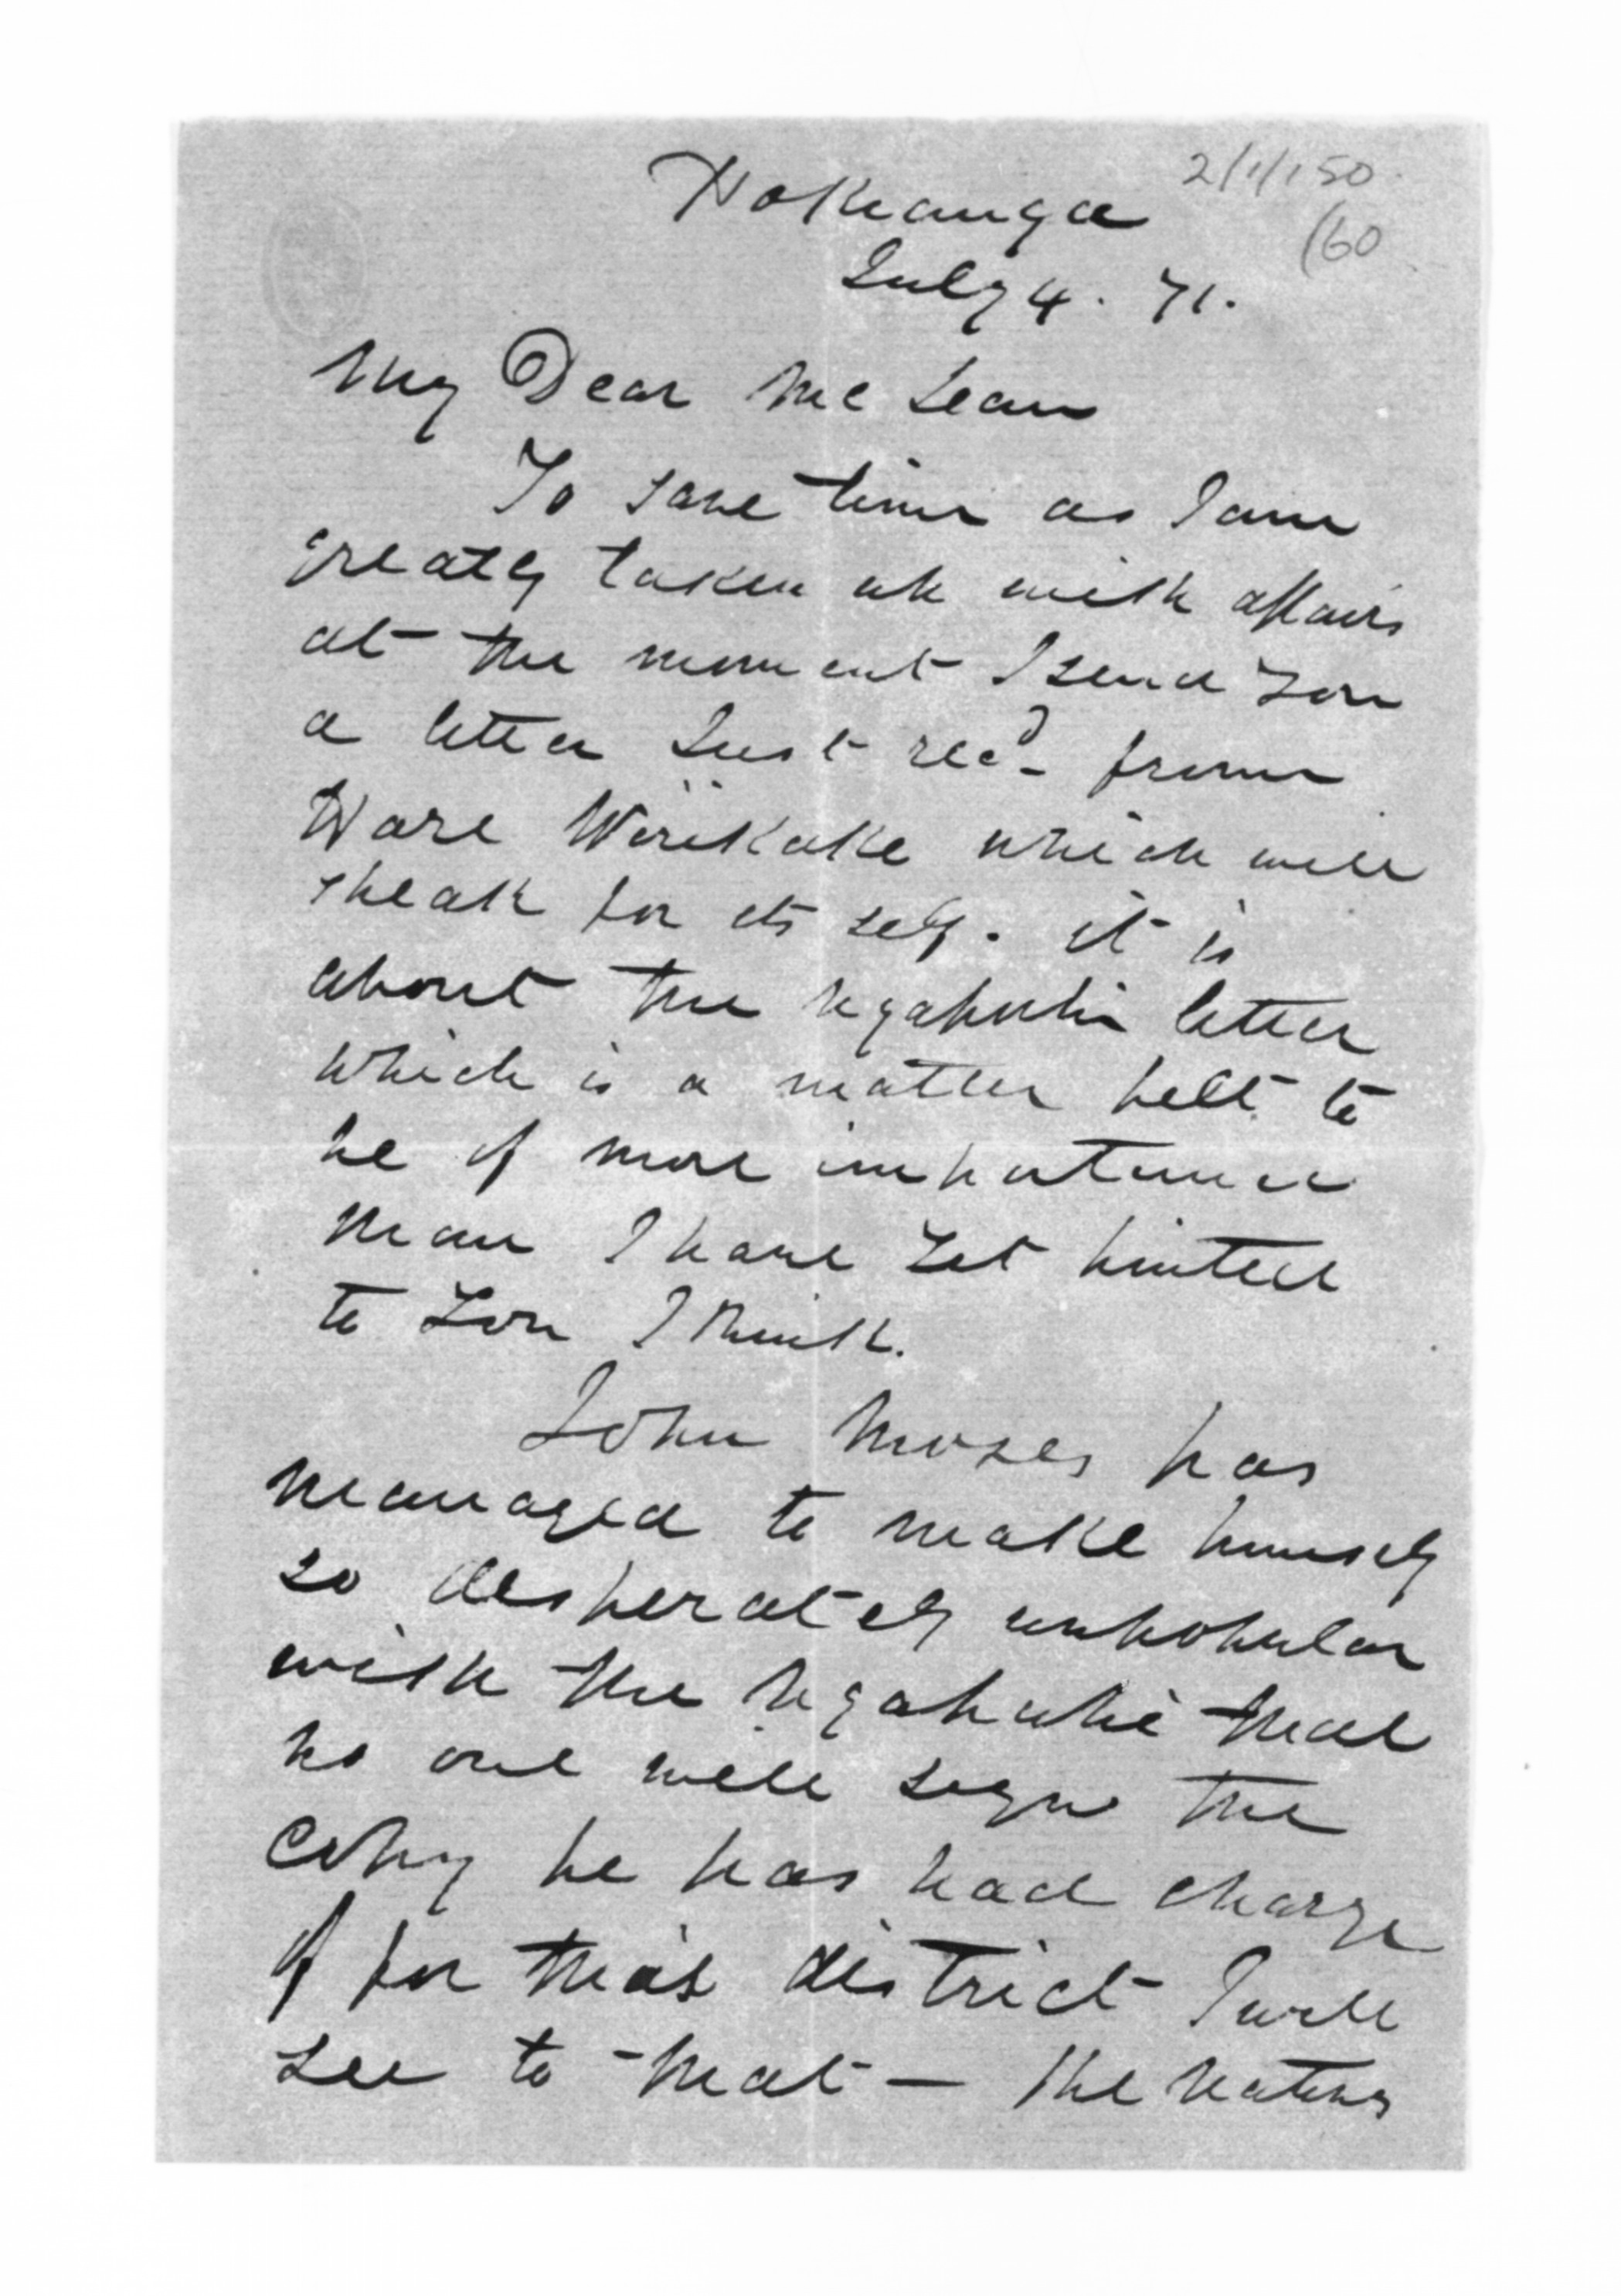 2/1/150
(60
Hokianga
July 4. 71.
My Dear McLean
To save time as I am
greatly taken up with affairs
at the moment I send you
a letter Just recd. from
Hare Wirikake which will
speak for its self. it is
about the Ngapuhi letter
which is a matter felt to
be of more importance
than I have yet hinted
to you I think.
John Moses has
managed to make himself
so desperately unpopular
with the Ngapuhi that
no one will sign the
copy he has had charge
of for this district I will
see to that — the natives